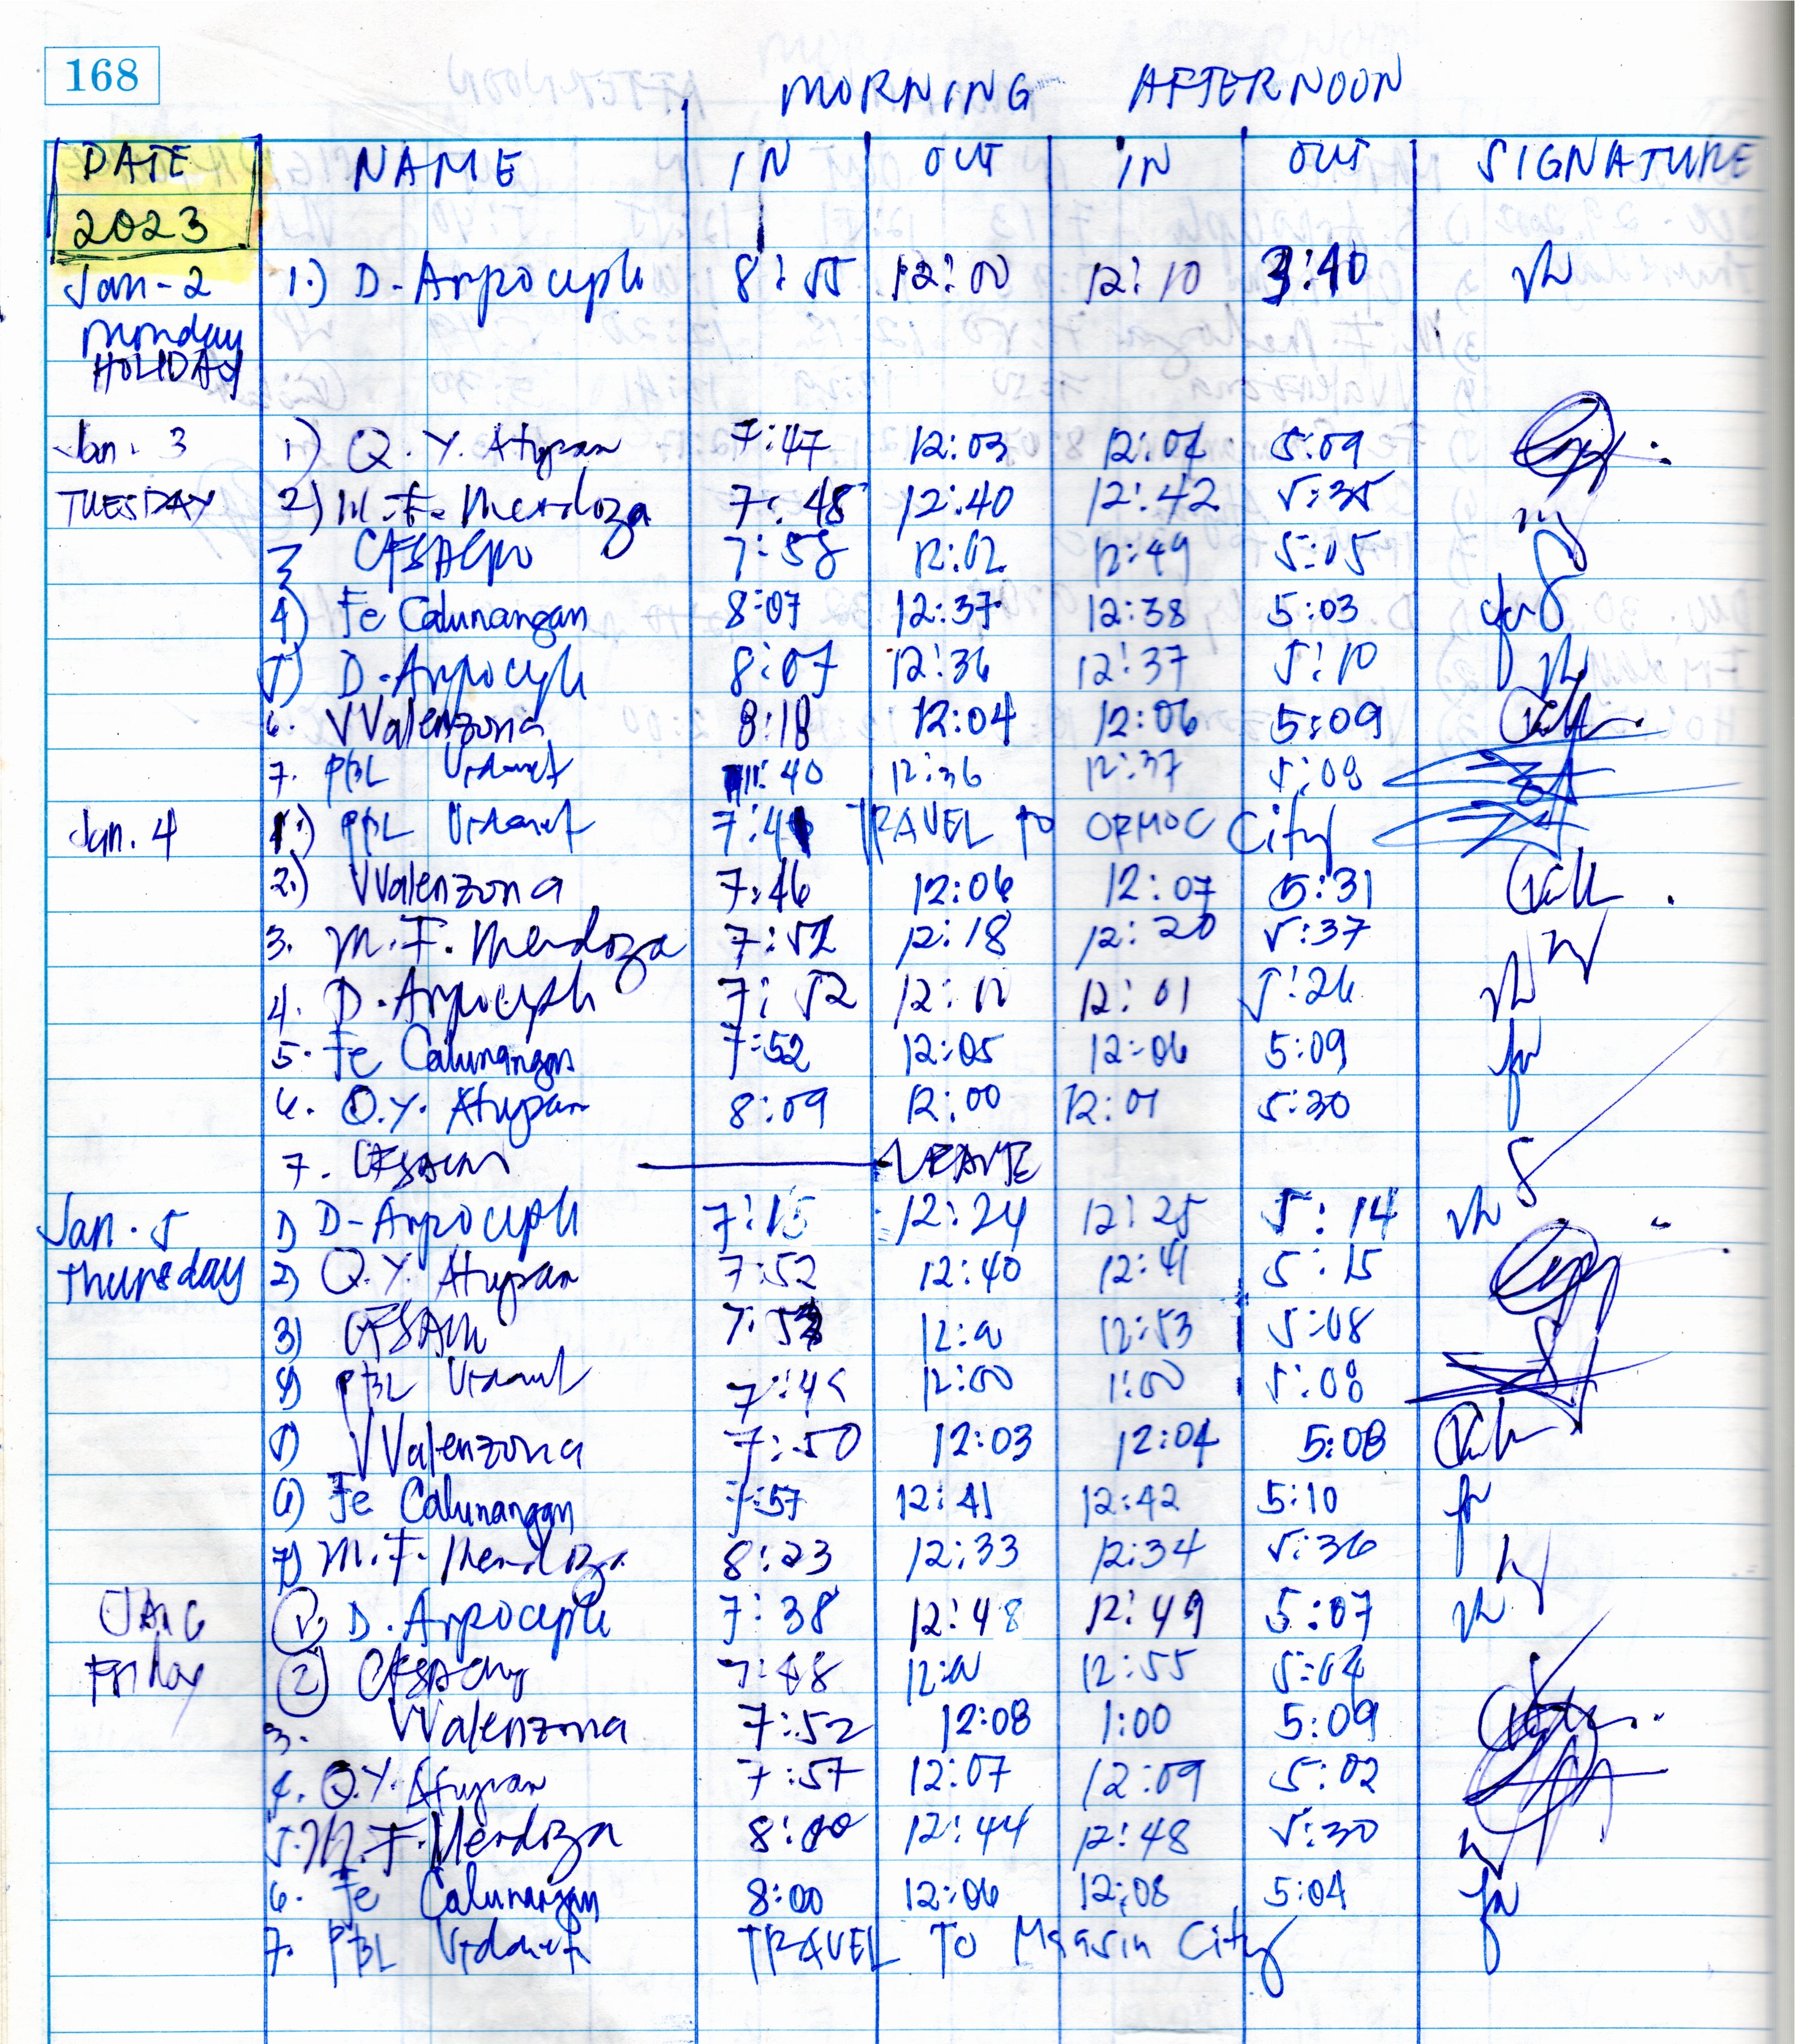 168
MORNING AFTERNOON
DATE NAME IN OUT IN OUT SIGNATURE
2023
Jan-2 1.) D-Arpoceple 8:55 12:00 12:10 3:40
Monday
HOLIDAY
Jan. 3 1) Q.Y. Atupan 7:47 12:03 12:04 5:09
TUESDAY 2) M.F. Mendoza 7:48 12:40 12:42 5:35
3 7:58 12:02 12:49 5:05
4) Fe Calunangan 8:07 12:37 12:38 5:03
5) D-Arpoceple 8:07 12:36 12:37 5:10
6. VValenzona 8:18 12:04 12:06 5:09
7. PBL :40 12:36 12:37 5:08
Jan. 4 1.) PBL 7:41 TRAVEL to ORMOC City
2.) VValenzona 7:46 12:06 12:07 5:31
3. M.F. Mendoza 7:52 12:18 12:20 5:37
4. D-Arpoceple 7:52 12:01 5:26
5. Fe Calunangan 7:52 12:05 12:06 5:09
6. Q.Y. Atupan 8:09 12:00 12:01 5:30
7. LEAVE
Jan. 5 1) D-Arpoceple 7:15 12:24 12:25 5:14
Thursday 2) Q.Y. Atupan 7:52 12:40 12:41 5:15
3) 12:53 5:08
4) PBL 12:00 1:00 5:08
5) VValenzona 7:50 12:03 12:04 5:08
6) Fe Calunangan 7:57 12:41 12:42 5:10
7) M.F. Mendoza 8:23 12:33 12:34 5:36
JAN 6 1. D. Arpoceple 7:38 12:48 12:49 5:07
Friday 2 7:48 12:55 5:04
3. VValenzona 7:52 12:08 1:00 5:09
4. Q.Y. Atupan 7:57 12:07 12:09 5:02
5. M.F. Mendoza 8:00 12:44 12:48 5:30
6. Fe Calunangan 8:00 12:06 12:08 5:04
7. PBL TRAVEL TO Maasin City